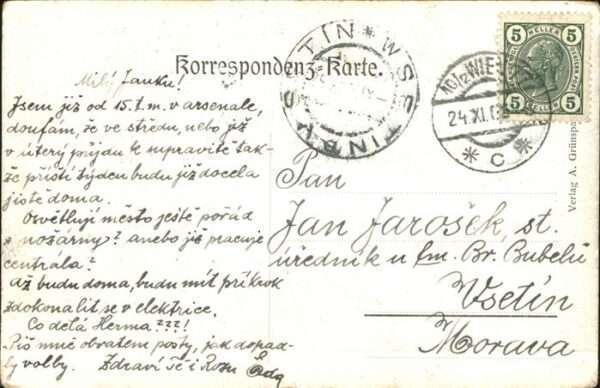 Korrespondenz-Karte.
WSETIN * WSETIN
16/2 WIEN
24.XI.
* C *
5 HELLER 5
5 HELLER 5
Verlag A. Grünsp
Milý Janku!
Jsem již od 15.t.m. v arsenale,
doufám, že ve středu, nebo již
v úterý přijdu k supravitě tak-
že příští týden budu již docela
jistě doma.
Osvětlují město ještě pořád
s nozárny? anebo již pracuje
centrála?
až budu doma, budu mít príkrok
zdokonalit se v elektrice.
Co dělá Herma???!
Piš mně obratem pošty, jak dopad-
ly volby. Zdraví Tě i Rosu
Pan
Jan Jarošek, st.
úředník u fm. Br. Bubelů
Vsetín
Morava